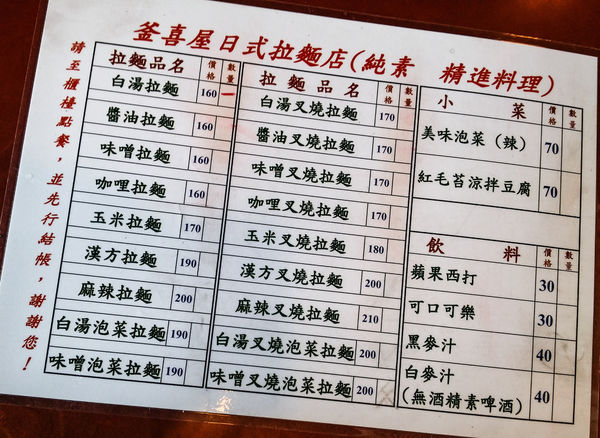 釜喜屋日式拉麵店(純素 精進料理)
請至櫃檯點餐，並先行結帳，謝謝您！
拉麵品名 價格 數量
白湯拉麵 160
醬油拉麵 160
味噌拉麵 160
咖哩拉麵 160
玉米拉麵 170
漢方拉麵 190
麻辣拉麵 200
白湯泡菜拉麵 190
味噌泡菜拉麵 190
拉麵品名 價格 數量
白湯叉燒拉麵 170
醬油叉燒拉麵 170
味噌叉燒拉麵 170
咖哩叉燒拉麵 170
玉米叉燒拉麵 180
漢方叉燒拉麵 200
麻辣叉燒拉麵 210
白湯叉燒泡菜拉麵 200
味噌叉燒泡菜拉麵 200
小菜 價格 數量
美味泡菜（辣） 70
紅毛苔涼拌豆腐 70
飲料 價格 數量
蘋果西打 30
可口可樂 30
黑麥汁 40
白麥汁
(無酒精素啤酒) 40